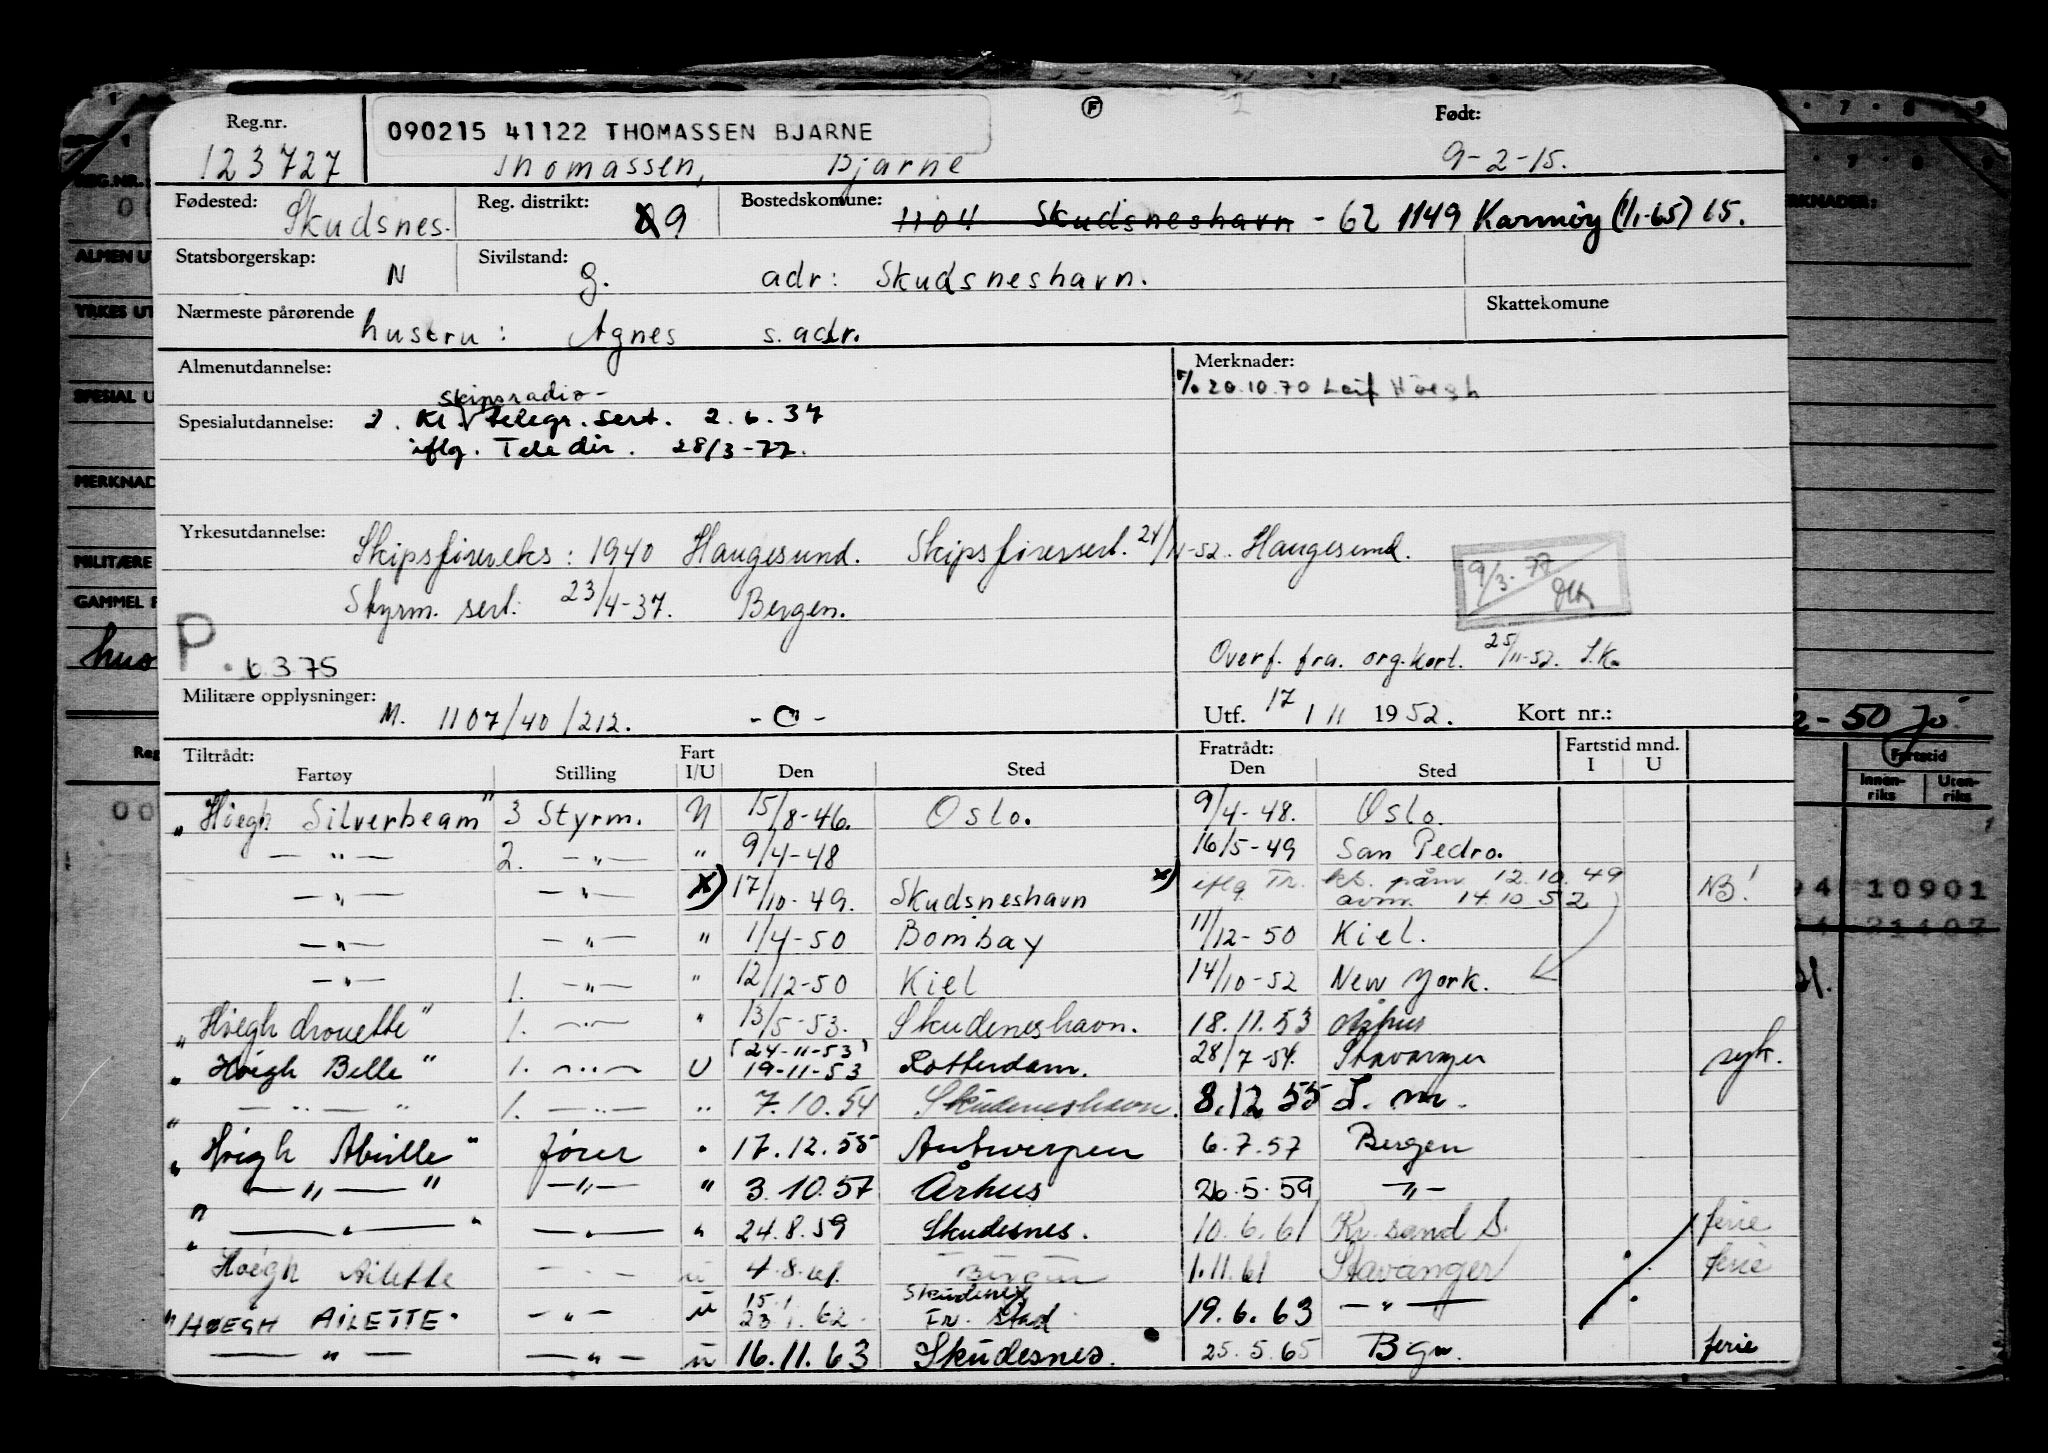 Reg.nr. 090215 41122 THOMASSEN BJARNE F Født:
123727 Thomassen, Bjarne 9-2-15.
Fødested: Skudsnes. Reg. distrikt: 09 Bostedskomune: 1104 Skudsneshavn - 62 1149 Karmøy (1/1-65) 65.
Statsborgerskap: N Sivilstand: g. adr: Skudsneshavn.
Nærmeste pårørende hustru: Agnes s. adr. Skattekomune
Almenutdannelse: Merknader:
20.10.70 Leif Höegh
skipsradio-
Spesialutdannelse: 2. Kl. telegr. sert. 2.6.37
iflg. Tele dir. 28/3-77.
Yrkesutdannelse: Skipsførereks: 1940 Haugesund. Skipsførersert. 24/11-52. Haugesund.
9/3-77
Styrm. sert: 23/4-37. Bergen.
P. 6375 Overf. fra. org.kort. 25/11-52. S.K.
Militære opplysninger: M. 1107/40/212. -O- Utf. 17/11 1952. Kort nr.:
Tiltrådt: Fart Fratrådt: Fartstid mnd.
Fartøy Stilling I/U Den Sted Den Sted I U
"Høegh Silverbeam" 3 Styrm. U 15/8-46. Oslo. 9/4-48. Oslo.
— " — 2. — " — " 9/4-48 16/5-49 San Pedro.
— " — — " — x) 17/10-49. Skudsneshavn x) iflg Tr. kt. påm. 12.10.49 NB!
avm. 14.10.52
— " — — " — " 1/4-50 Bombay 11/12-50 Kiel.
— " — 1. — " — " 12/12-50 Kiel 14/10-52 New York.
"Höegh Drouette" 1. — " — " 13/5-53. Skudeneshavn. 18.11.53
(24-11-53)
"Höegh Belle" 1. — " — U 19-11-53 Rotterdam. 28/7-54. Stavanger syk.
" — " — " 1. — " — " 7.10.54 Skudeneshavn. 8.12.55
"Höegh Abeille" fører " 17.12.55 Antwerpen 6.7.57 Bergen
— " — " — " — " 3.10.57 Århus 26.5.59 — " —
" — " — " — " — " 24.8.59 Skudesnes. 10.6.61 Kr. sand S. ferie
Hoegh Ailette — " — u 4.8.61. Bergen 1.11.61 Stavanger ferie
15.1 Skudenes
"HØEGH AILETTE" — " — u 23.1.62 Fr. stad 19.6.63 — " —
— " — — " — u 16.11.63 Skudesnes. 25.5.65 Bgn. ferie